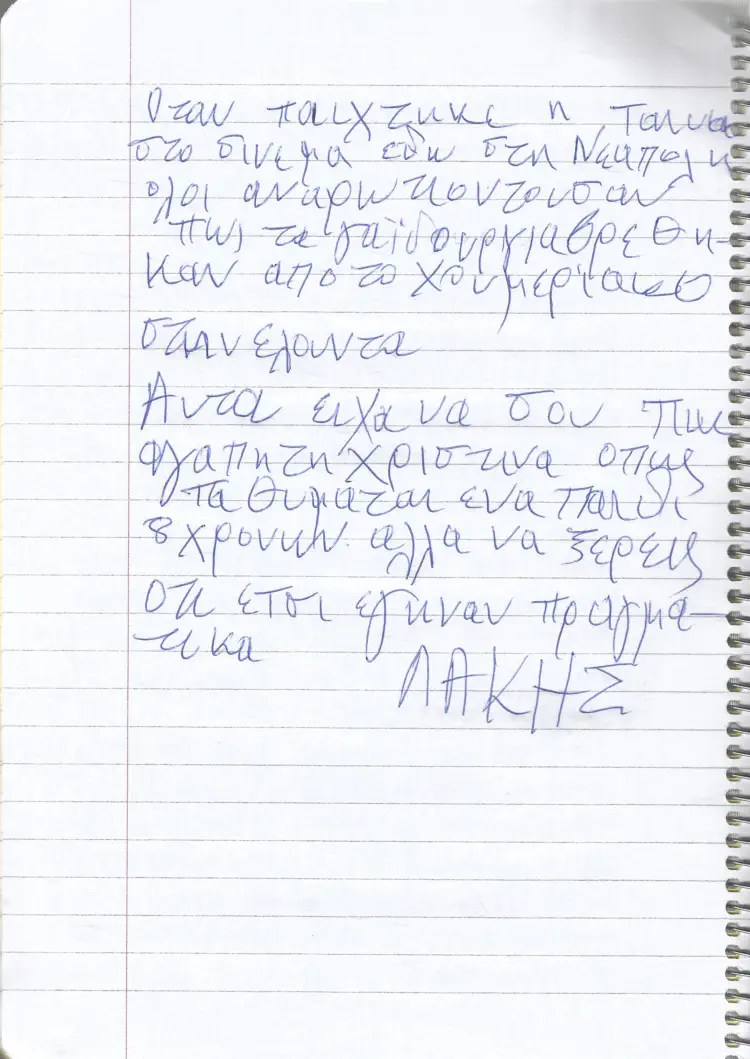 Οταν παιχτηκε η ταινια
στο σινεμά εδω στη Νεαπολη
ολοι αναρωτιοντουσαν
πως τα γαϊδουργιαβρεθη-
καν από το χουμεριακο
στην ελουντα
Αυτα ειχα να σου πω
αγαπητη χριστινα οπως
τα θυμαται ενα παιδι
8 χρονων. αλλα να ξερεις
οτι ετσι εγιναν πραγμα-
τικα
ΛΑΚΗΣ